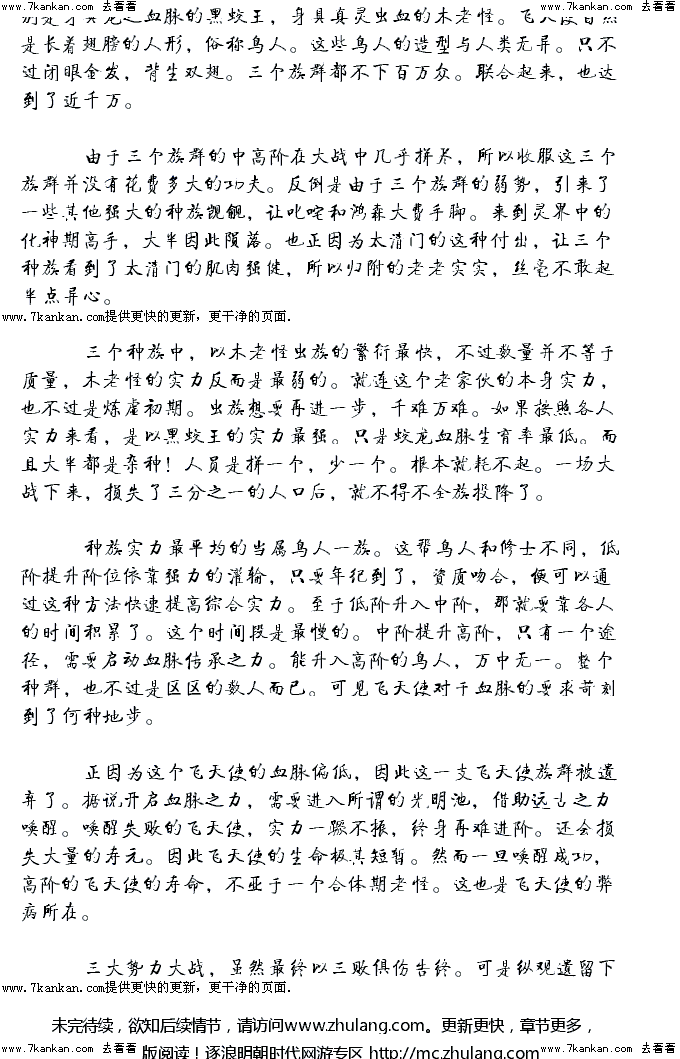 www.7kankan.com 去看看 www.7kankan.com 去看看 www.7kankan.com 去看看
别是身具龙之血脉的黑蛟王，身具真灵出血的木老怪。飞天使自然
是长着翅膀的人形，俗称鸟人。这些鸟人的造型与人类无异。只不
过闭眼金发，背生双翅。三个族群都不下百万众。联合起来，也达
到了近千万。
由于三个族群的中高阶在大战中几乎拼尽，所以收服这三个
族群并没有花费多大的功夫。反倒是由于三个族群的弱势，引来了
一些其他强大的种族觊觎，让叱咤和鸿森大费手脚。来到灵界中的
化神期高手，大半因此陨落。也正因为太清门的这种付出，让三个
种族看到了太清门的肌肉强健，所以归附的老老实实，丝毫不敢起
半点异心。
www.7kankan.com提供更快的更新，更干净的页面.
三个种族中，以木老怪出族的繁衍最快，不过数量并不等于
质量，木老怪的实力反而是最弱的。就连这个老家伙的本身实力，
也不过是炼虚初期。出族想要再进一步，千难万难。如果按照各人
实力来看，是以黑蛟王的实力最强。只是蛟龙血脉生育率最低。而
且大半都是杂种！人员是拼一个，少一个。根本就耗不起。一场大
战下来，损失了三分之一的人口后，就不得不全族投降了。
种族实力最平均的当属鸟人一族。这帮鸟人和修士不同，低
阶提升阶位依靠强力的灌输，只要年纪到了，资质吻合，便可以通
过这种方法快速提高综合实力。至于低阶升入中阶，那就要靠各人
的时间积累了。这个时间段是最慢的。中阶提升高阶，只有一个途
径，需要启动血脉传承之力。能升入高阶的鸟人，万中无一。整个
种群，也不过是区区的数人而已。可见飞天使对于血脉的要求苛刻
到了何种地步。
正因为这个飞天使的血脉偏低，因此这一支飞天使族群被遗
弃了。据说开启血脉之力，需要进入所谓的光明池，借助远古之力
唤醒。唤醒失败的飞天使，实力一蹶不振，终身再难进阶。还会损
失大量的寿元。因此飞天使的生命极其短暂。然而一旦唤醒成功，
高阶的飞天使的寿命，不亚于一个合体期老怪。这也是飞天使的弊
病所在。
三大势力大战，虽然最终以三败俱伤告终。可是纵观遗留下
www.7kankan.com提供更快的更新，更干净的页面.
未完待续，欲知后续情节，请访问www.zhulang.com。更新更快，章节更多，
www.7kankan.com 去看看 版阅读！逐浪明朝时代网游专区 http://mc.zhulang.com 去看看